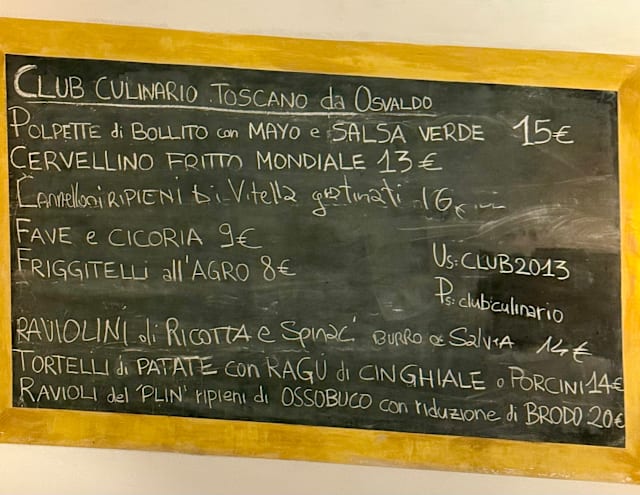 CLUB CULINARIO TOSCANO da OSVALDO
POLPETTE di BOLLITO con MAYO e SALSA VERDE 15€
CERVELLINO FRITTO MONDIALE 13€
Cannelloni RIPIENI Di Vitella gratinati 16€
FAVE e CICORIA 9€
FRIGGITELLI all'AGRO 8€
Us: CLUB2013
Ps: club culinario
RAVIOLINI di RICOTTA e Spinaci BURRO e SalviA 14€
TORTELLI di PATATE con RAGÙ di CINGHIALE o PORCINI 14€
RAVIOLI del 'PLIN' ripieni di OSSOBUCO con riduzione di BRODO 20€